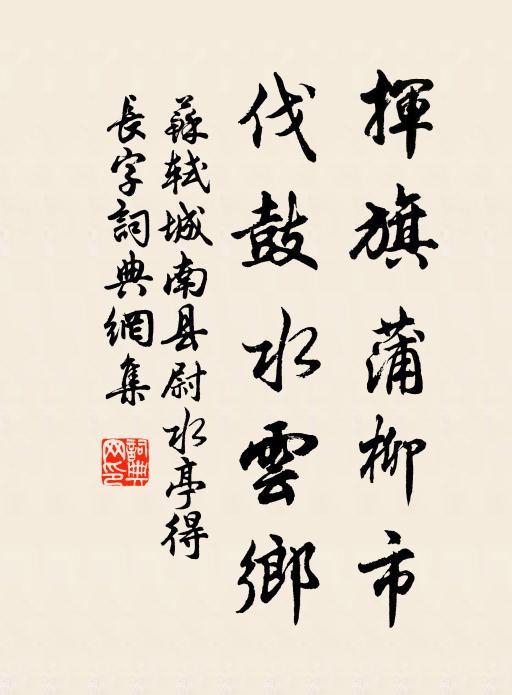 揮旗蒲柳市
伐鼓水雲鄉
蘇軾城南县尉水亭得
長字詞典網集
詞典
网印